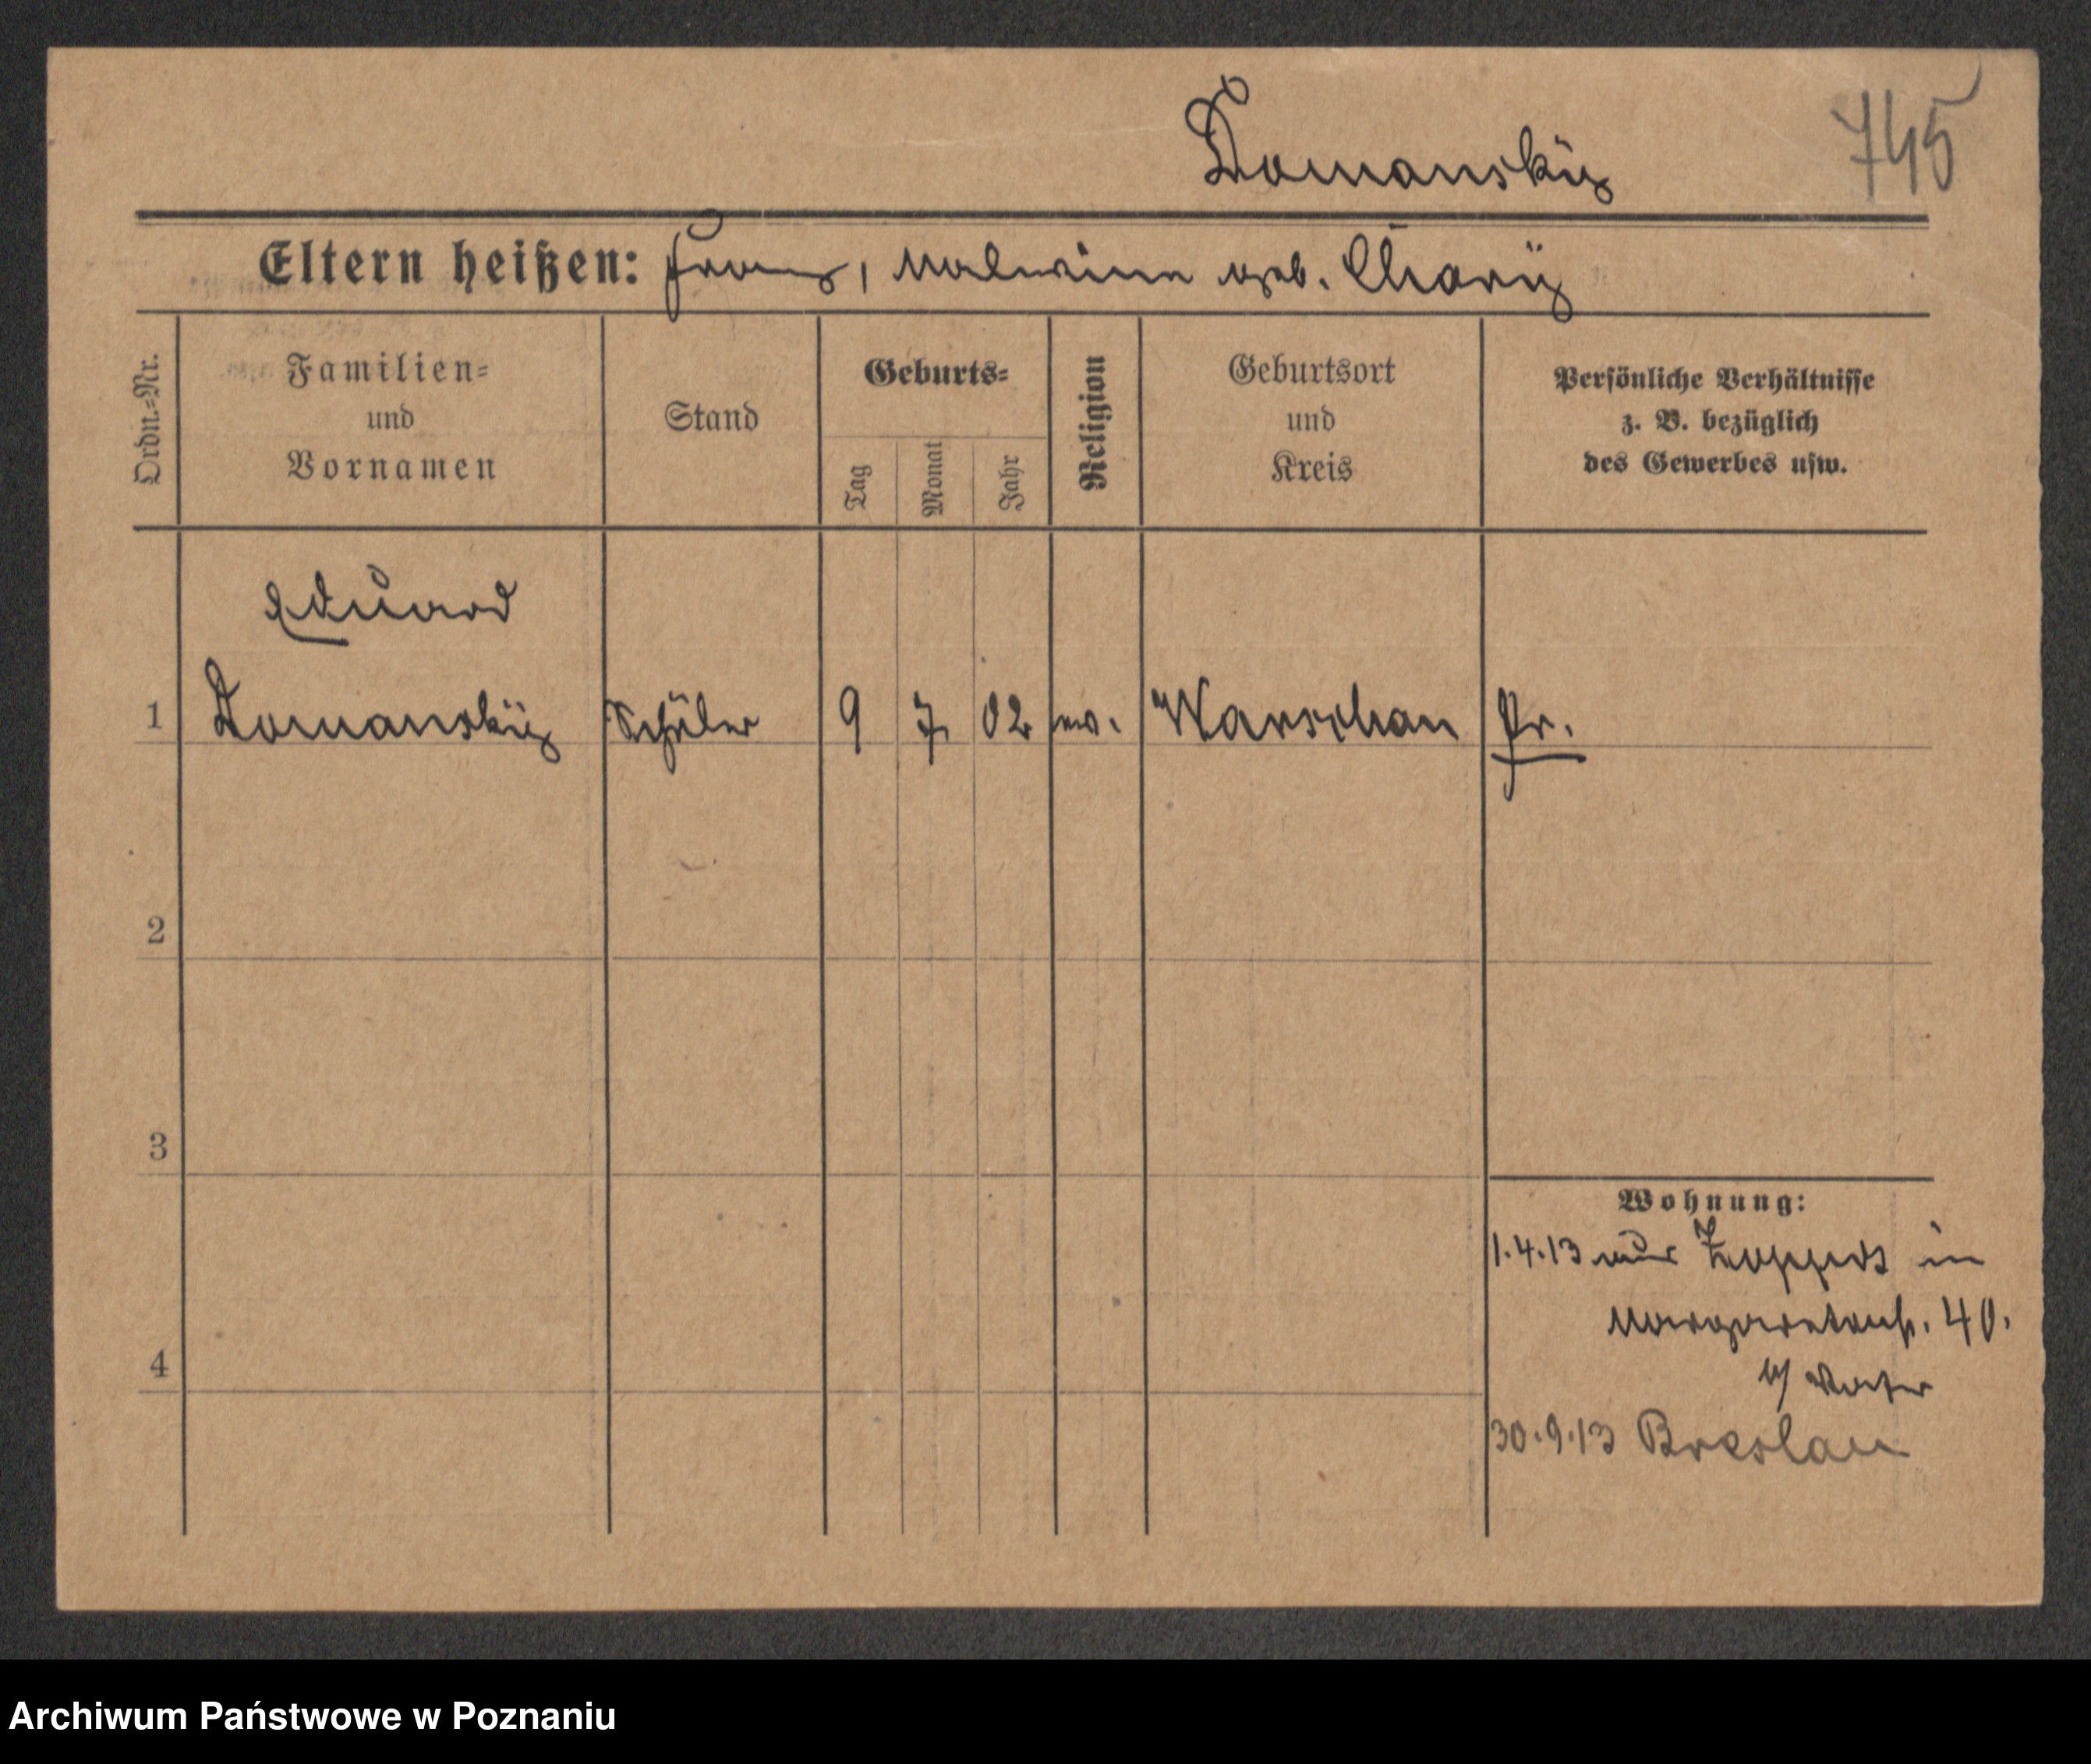 Domansky
745
Eltern heißen: Franz, Malwine geb. Chary
Ordn.=Nr.
Familien=
und
Vornamen
Stand
Geburts=
Tag
Monat
Jahr
Religion
Geburtsort
und
Kreis
Persönliche Verhältnisse
z. B. bezüglich
des Gewerbes usw.
Eduard
1 Domansky Schüler 9 7 02 ev. Warschau Pr.
2
3
4
Wohnung:
1.4.13 aus Zoppot in
Margaretenstr. 40.
b/ Vater
30.9.13 Breslau
Archiwum Państwowe w Poznaniu